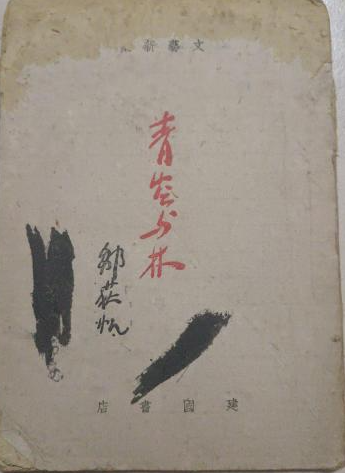 文藝新
青空与林
鄒荻帆
建國書店